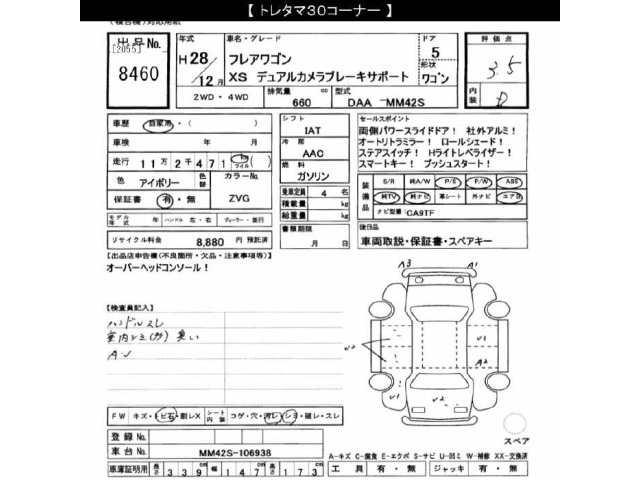 【 トレタマ30コーナー 】
(検合機)対応用紙
出品No.
[2055]
8460
年式
H 28/12月
車名・グレード
フレアワゴン
XS デュアルカメラブレーキサポート
ドア
5
形状
ワゴン
2WD・4WD
排気量
660 cc
型式
DAA -MM42S
評価点
3.5
内装
D
車歴
自家用・( )
車検
年 月
走行
11万2千471 km マイル ( )
色
アイボリー
色替
カラーNo.
ZVG
保証書
有・無
モデル年式
年
ハンドル 左・右
ディーラー・並行
リサイクル料金
8,880 円 預託済
シフト
IAT
冷房
AAC
燃料
ガソリン
乗車定員 4 名
積載量 kg
総重量 kg
書類期限
月 日
セールスポイント
両側パワースライドドア! 社外アルミ!
オートリトラミラー! ロールシェード!
ステアスイッチ! Hライトレベライザー!
スマートキー! プッシュスタート!
装備品
S/R 純A/W P/S P/W ABS
純TV 純ナビ 革シート 外ナビ エアB
ナビ型番:CA9TF
後日品
車両取説・保証書・スペアキー
【出品店申告欄(不良箇所・欠品・注意事項等)】
オーバーヘッドコンソール!
【検査員記入】
ハンドルスレ
A3
A1
U2
U1
A2
U1
U2
スペア
FW キズ・トビ石・割レX
シート内装 コゲ・穴・汚レ・シミ・破レ・スレ
登録No.
車台No.
MM42S-106938
車庫証明用 長さ 339cm 幅 147cm 高さ 173cm
A-キズ C-腐食 E-エクボ S-サビ U-凹ミ W-補修 XX-交換済
工具 有・無 ジャッキ 有・無